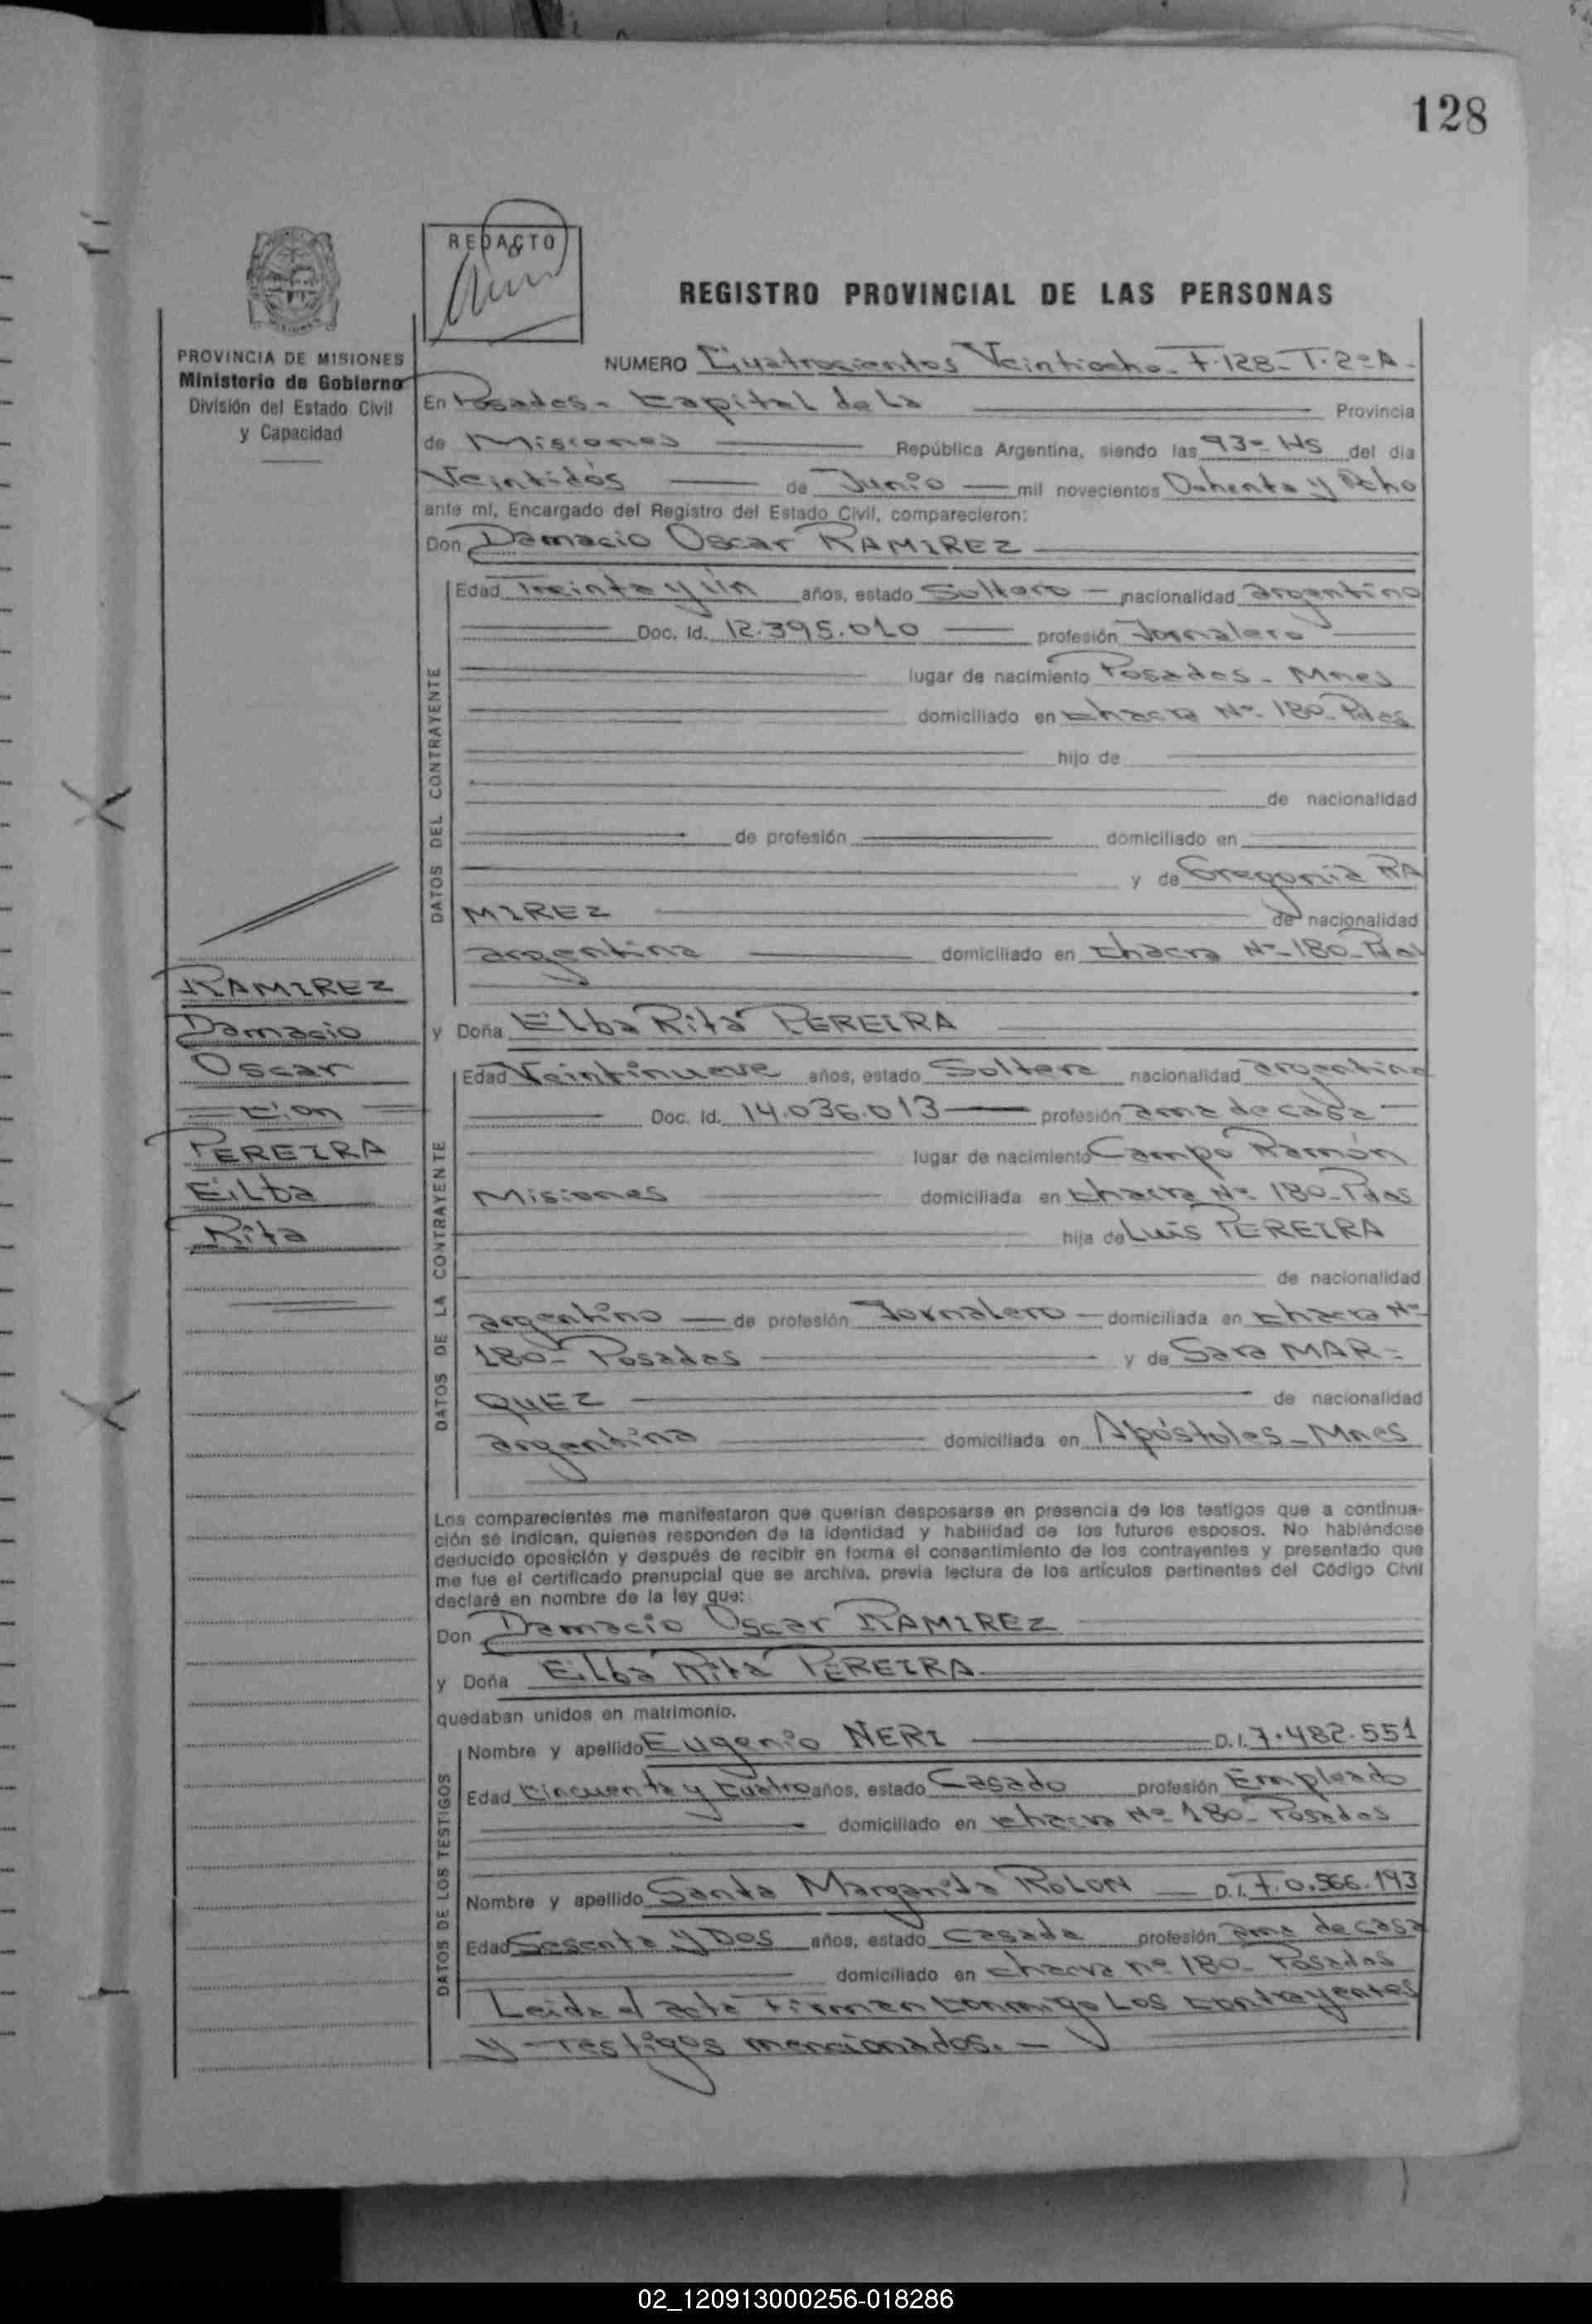 128
REDACTO
REGISTRO PROVINCIAL DE LAS PERSONAS
PROVINCIA DE MISIONES
Ministerio de Gobierno
División del Estado Civil
y Capacidad
NUMERO Cuatrocientos Veintiocho - F.128 - T.2º A -
En Posadas - Capital de La Provincia
de Misiones República Argentina, siendo las 930 Hs del día
Veintidós de Junio mil novecientos Ochenta y Ocho
ante mí, Encargado del Registro del Estado Civil, comparecieron:
Don Damacio Oscar RAMIREZ
DATOS DEL CONTRAYENTE
Edad Treinta y Ún años, estado Soltero nacionalidad argentino
Doc. Id. 12.395.010 profesión Jornalero
lugar de nacimiento Posadas - Mnes
domiciliado en Chacra Nº 180 - Pdas
hijo de
de nacionalidad
de profesión domiciliado en
y de Gregoria RA
MIREZ de nacionalidad
argentina domiciliado en Chacra Nº 180 - Pdas
RAMIREZ
Damacio
Oscar
= Con =
PEREIRA
Elba
Rita
y Doña Elba Rita PEREIRA
DATOS DE LA CONTRAYENTE
Edad Veintinueve años, estado Soltera nacionalidad argentina
Doc. Id. 14.036.013 profesión ama de casa
lugar de nacimiento Campo Ramón
Misiones domiciliada en Chacra Nº 180 - Pdas
hija de Luis PEREIRA
de nacionalidad
argentino de profesión Jornalero domiciliada en Chacra Nº
180 - Posadas y de Sara MAR-
QUEZ de nacionalidad
argentina domiciliada en Apóstoles - Mnes
Los comparecientes me manifestaron que querían desposarse en presencia de los testigos que a continua-
ción se indican, quienes responden de la identidad y habilidad de los futuros esposos. No habiéndose
deducido oposición y después de recibir en forma el consentimiento de los contrayentes y presentado que
me fue el certificado prenupcial que se archiva, previa lectura de los artículos pertinentes del Código Civil
declaré en nombre de la ley que:
Don Damacio Oscar RAMIREZ
y Doña Elba Rita PEREIRA
quedaban unidos en matrimonio.
DATOS DE LOS TESTIGOS
Nombre y apellido Eugenio NERI D.I. 7.482.551
Edad Cincuenta y Cuatro años, estado Casado profesión Empleado
domiciliado en Chacra Nº 180 - Posadas
Nombre y apellido Santa Margarita ROLON D.I. F.0.566.193
Edad Sesenta y Dos años, estado Casada profesión ama de casa
domiciliado en Chacra nº 180 - Posadas
Leida el acta Firman Conmigo Los Contrayentes
y Testigos mencionados. -
02_120913000256-018286